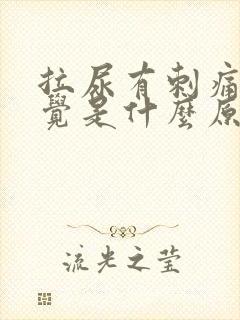 拉尿有刺痛
覺是什麼原
流光之莹